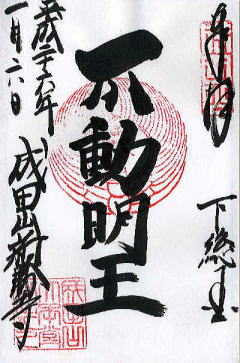 奉拝
下総國
不動明王
平成二十六年
一月六日
成田山新勝寺